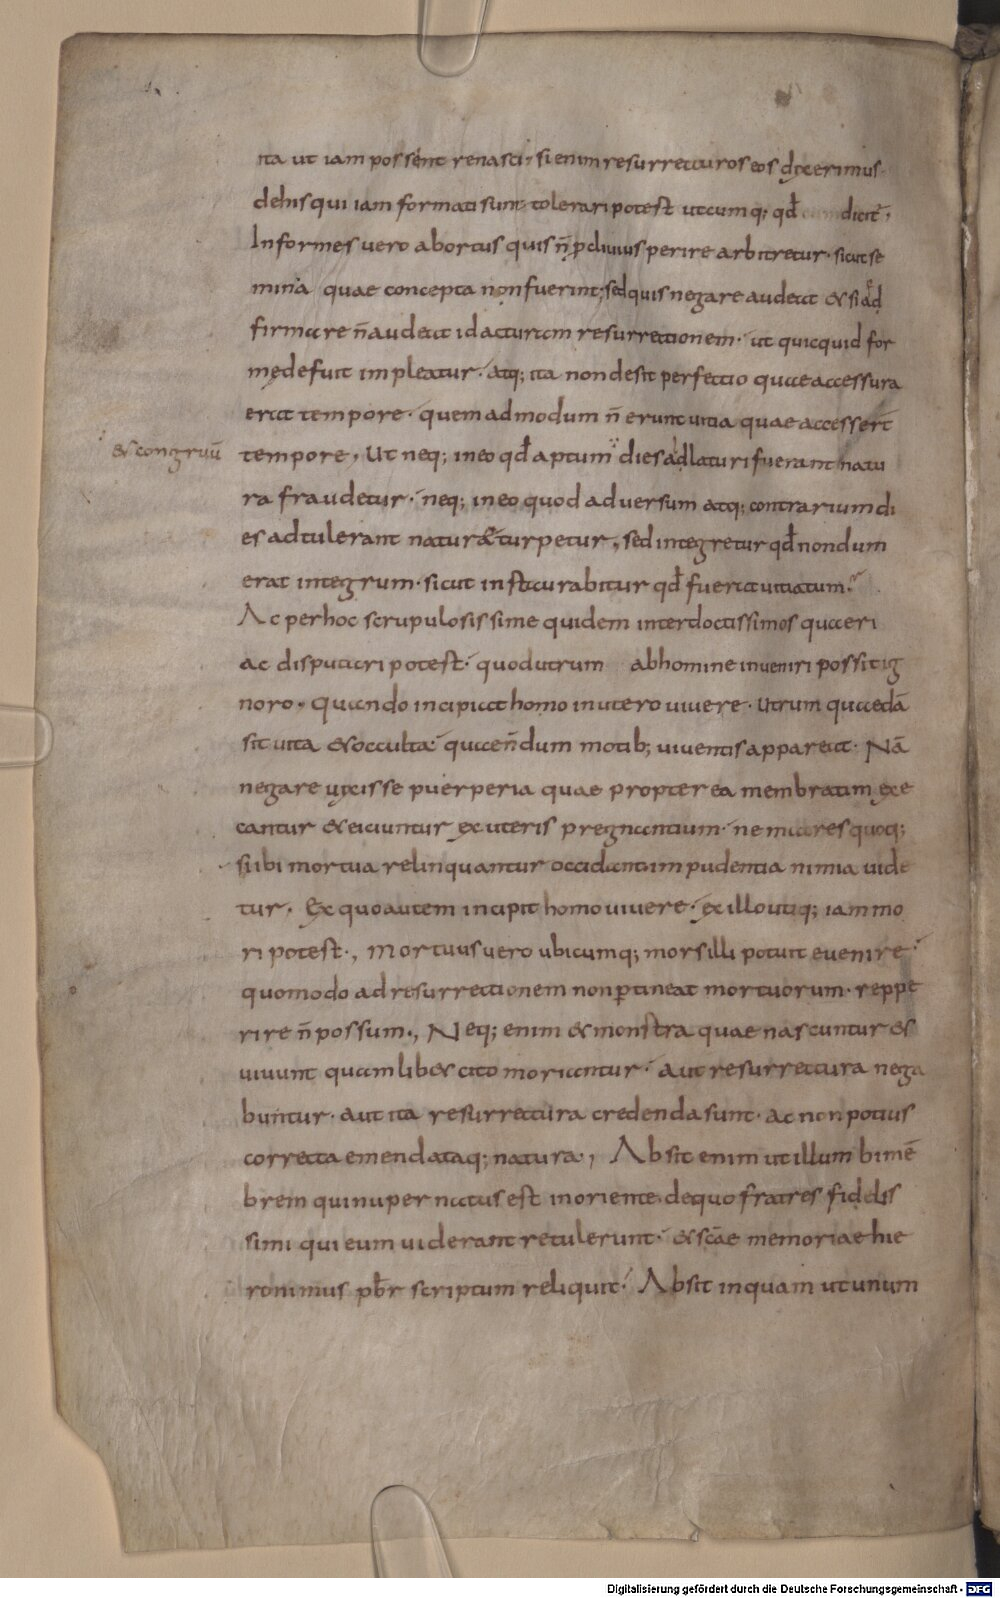 ita ut iam possent renasci, si enim resurrecturos eos dixerimus.
dehis qui iam formati sunt tolerari potest utcumq; qđ dicit̄.
Informes vero abortus quis n̄ ꝓclivius perire arbitretur. sicut se
mina quae concepta non fuerint; sed quis negare audeat & si ad
firmare n̄ audeat id acturam resurrectionem. ut quicquid for
mę defuit impleatur. atq; ita non desit perfectio quae accessura
erat tempore. quem ad modum n̄ erunt vitia quae accesser̄t
& congruū
tempore, Ut neq; in eo qđ aptum dies adlaturi fuerant natu
ra fraudetur. neq; in eo quod adversum atq; contrarium di
es adtulerant natura &turpetur, sed integretur qđ nondum
erat integrum. sicut instaurabitur qđ fuerat vitiatum.
Ac perhoc scrupulosissime quidem inter doctissimos quaeri
ac disputari potest. quod utrum ab homine inveniri possit ig
noro. Quando incipiat homo in utero vivere. Utrum quaedā
sit vita & occulta quae n̄dum motib; viventis appareat. Nā
negare vixisse puerperia quae propterea membratim exe
cantur & eiciuntur ex uteris pregnantium. ne matres quoq;
si ibi mortua relinquantur occidant impudentia nimia vide
tur. Ex quo autem incipit homo vivere. ex illo utiq; iam mo
ri potest., Mortuus vero ubicumq; mors illi potuit evenire
quomodo ad resurrectionem non ꝑtineat mortuorum. reppe
rire n̄ possum., Neq; enim & monstra quae nascuntur &
vivunt quamlib& cito moriantur. aut resurrectura nega
buntur. aut ita resurrectura credenda sunt. ac non potius
correcta emendataq; natura., Absit enim ut illum bimē
brem qui nuper natus est in oriente. de quo fratres fidelis
simi qui eum viderant retulerunt. & sc̄ae memoriae hie
ronimus pb̄r scriptum reliquit. Absit inquam ut unum
Digitalisierung gefördert durch die Deutsche Forschungsgemeinschaft - DFG